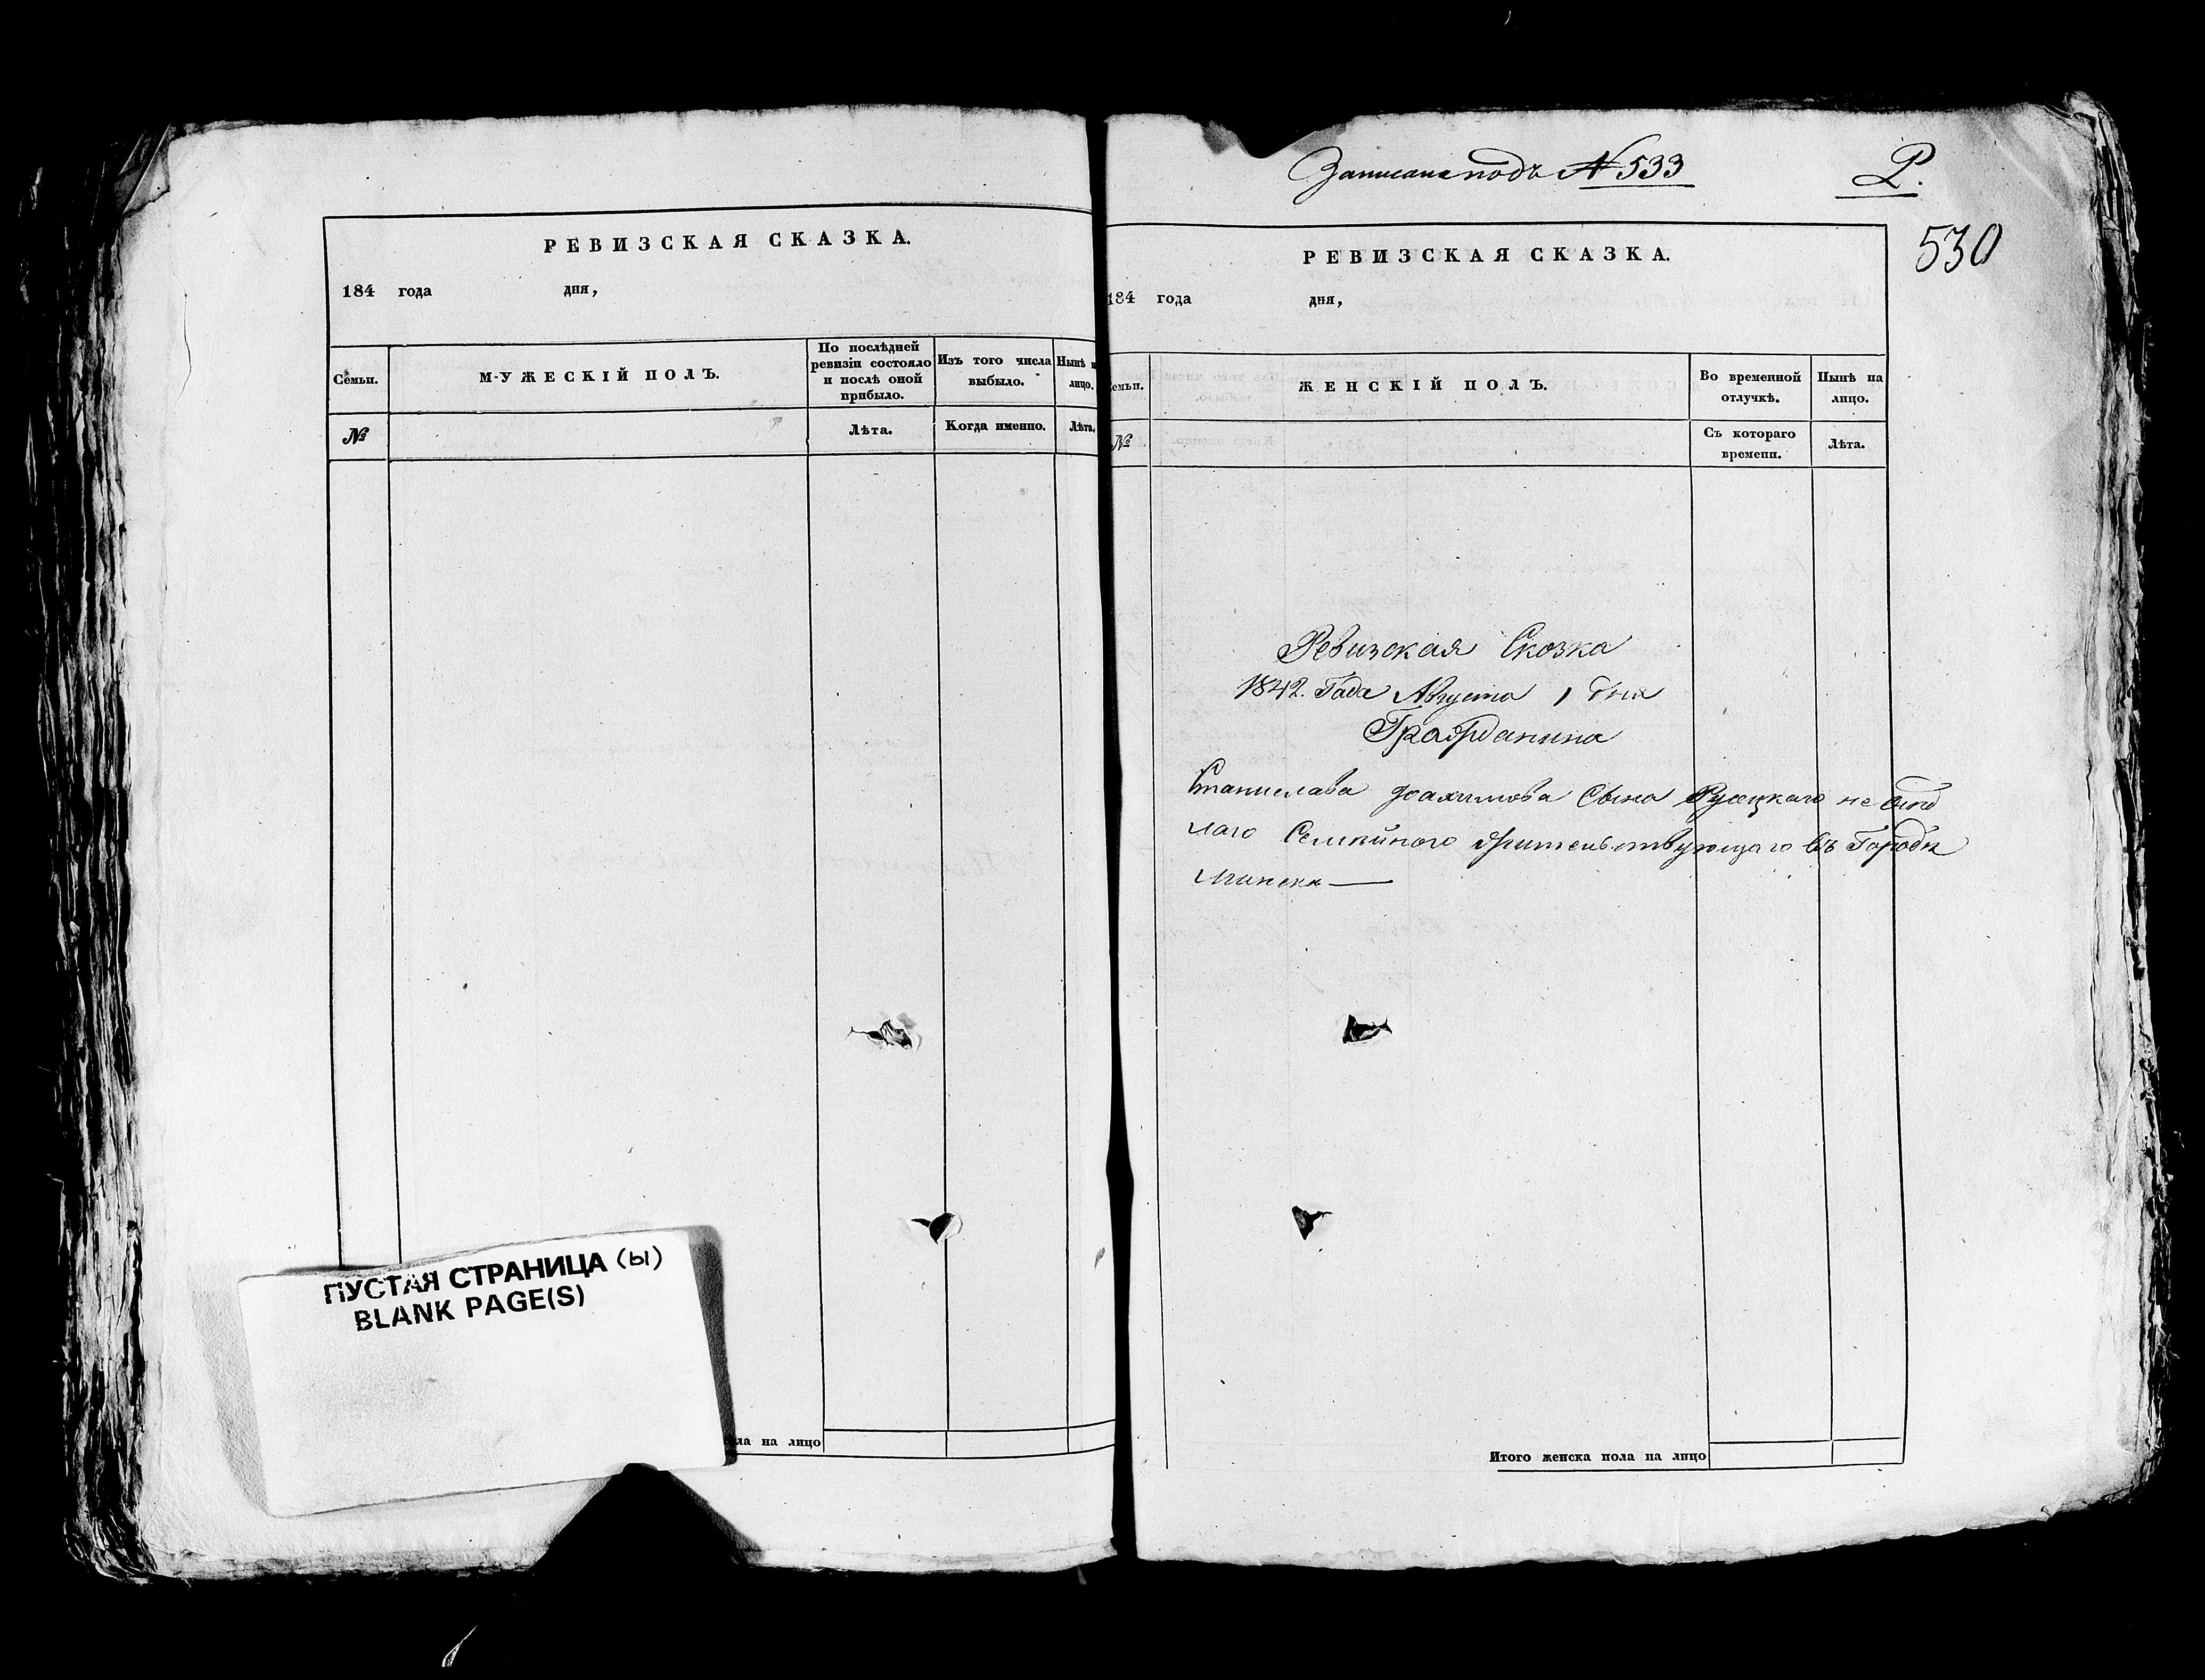 РЕВИЗСКАЯ СКАЗКА.
184 года дня,
Семьи.
МУЖЕСКІЙ ПОЛЪ.
По послѣдней ревизіи состояло и послѣ оной прибыло.
Изъ того числа выбыло.
Нынѣ н лицо.
№
Лѣта.
Когда именно.
Лѣта.
ла на лицо
ПУСТАЯ СТРАНИЦА (Ы)
BLANK PAGE(S)
Записана подъ № 533
Р.
530
РЕВИЗСКАЯ СКАЗКА.
184 года дня,
емьи.
ЖЕНСКІЙ ПОЛЪ.
Во временной отлучкѣ.
Нынѣ на лицо.
№
Съ котораго времени.
Лѣта.
Ревизская Сказка
1842. Года Августа 1 дня
Гражданина
Станислава Іоахимова Сына Русецкаго не осѣд
лаго Семейного жительствующаго въ Городѣ
Минскѣ
Итого женска пола на лицо